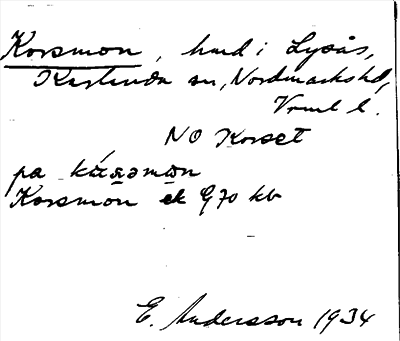 Korsmon, hmd i Lysås,
Karlanda sn, Nordmarks hd,
Vrml l.
NO Korset
pa
Korsmon ek G 70 kb
E. Andersson 1934